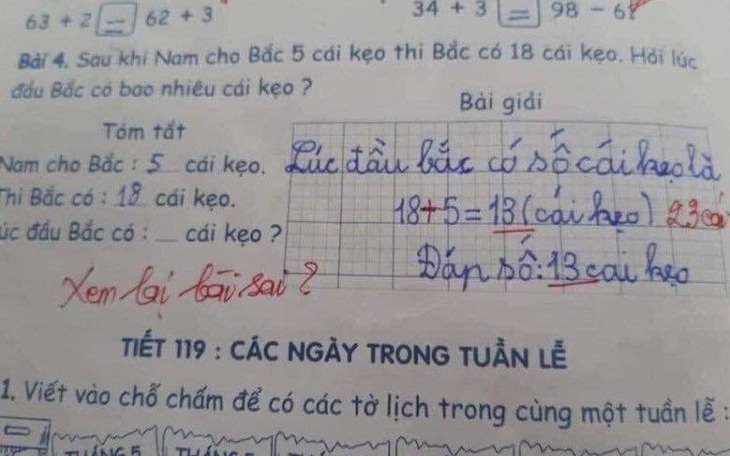 63 + 2 = 62 + 3
34 + 3 = 98 - 6
Bài 4. Sau khi Nam cho Bắc 5 cái kẹo thì Bắc có 18 cái kẹo. Hỏi lúc
đầu Bắc có bao nhiêu cái kẹo ?
Bài giải
Tóm tắt
Nam cho Bắc : 5 cái kẹo.
Thì Bắc có : 18 cái kẹo.
úc đầu Bắc có : ..... cái kẹo ?
Lúc đầu bắc có số cái kẹo là
18+5=13 (cái kẹo) 23 cá
Đáp số: 13 cái kẹo
Xem lại bài sai ?
TIẾT 119 : CÁC NGÀY TRONG TUẦN LỄ
1. Viết vào chỗ chấm để có các tờ lịch trong cùng một tuần lễ :
THÁNG 5